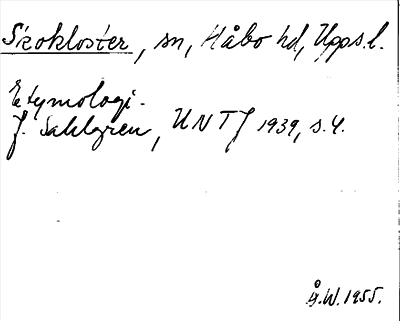 Skokloster, sn, Håbo hd, Upps.l.
Etymologi.
J. Sahlgren, UNT J 1939, s. 4.
Å.W. 1955.